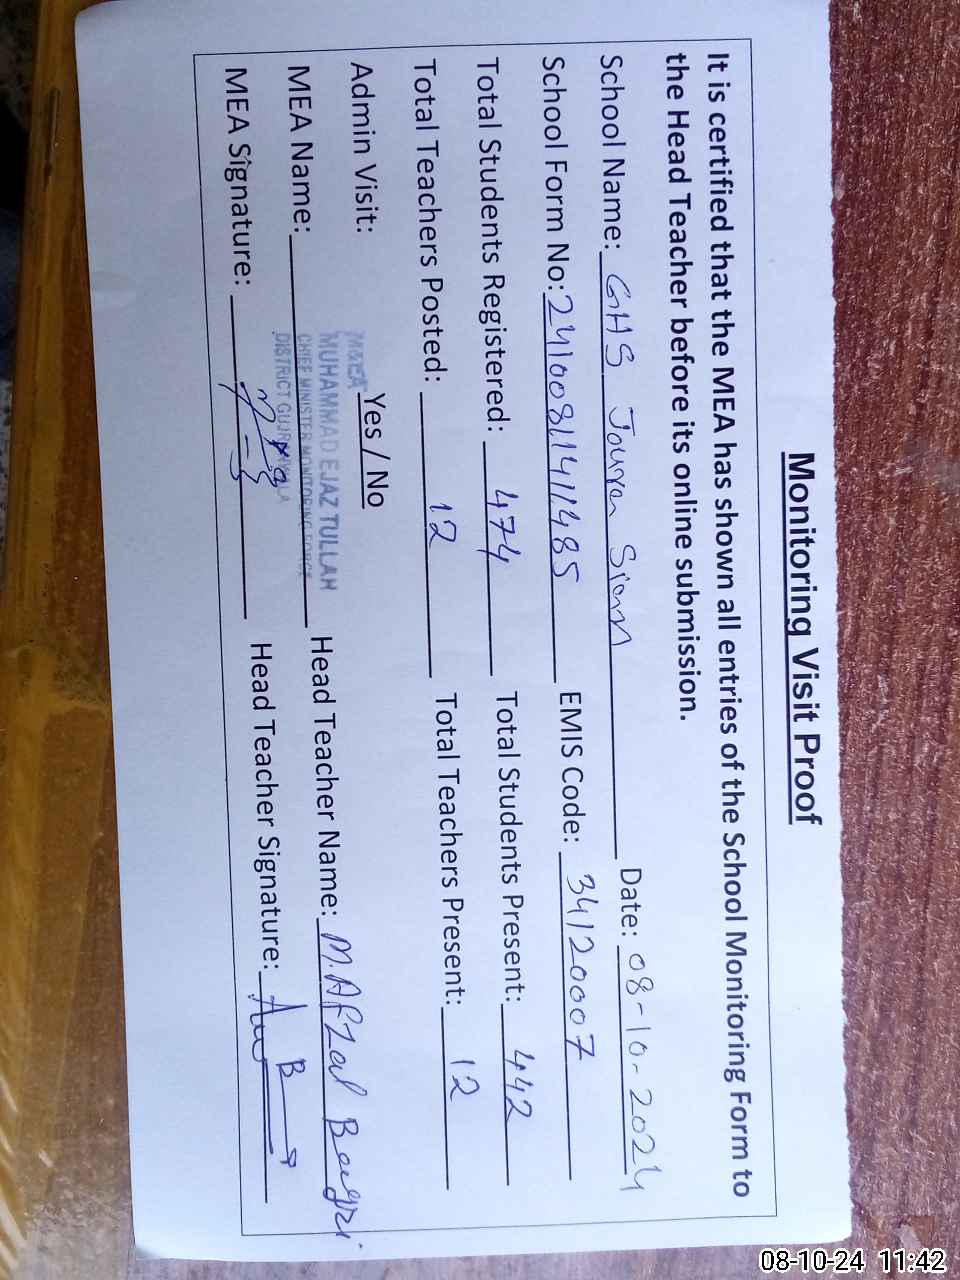 Monitoring Visit Proof
It is certified that the MEA has shown all entries of the School Monitoring Form to
the Head Teacher before its online submission.
School Name: GHS Date: 08-10-2024
School Form No: 24100811411485 EMIS Code: 34120007
Total Students Registered: 474 Total Students Present: 442
Total Teachers Posted: 12 Total Teachers Present: 12
Admin Visit: Yes / No
M&EA
MUHAMMAD EJAZ TULLAH
CHIEF MINISTER MONITORING FORCE
DISTRICT GUJRANWALA
MEA Name: Head Teacher Name: M. Afzal
MEA Signature: Head Teacher Signature:
08-10-24 11:42